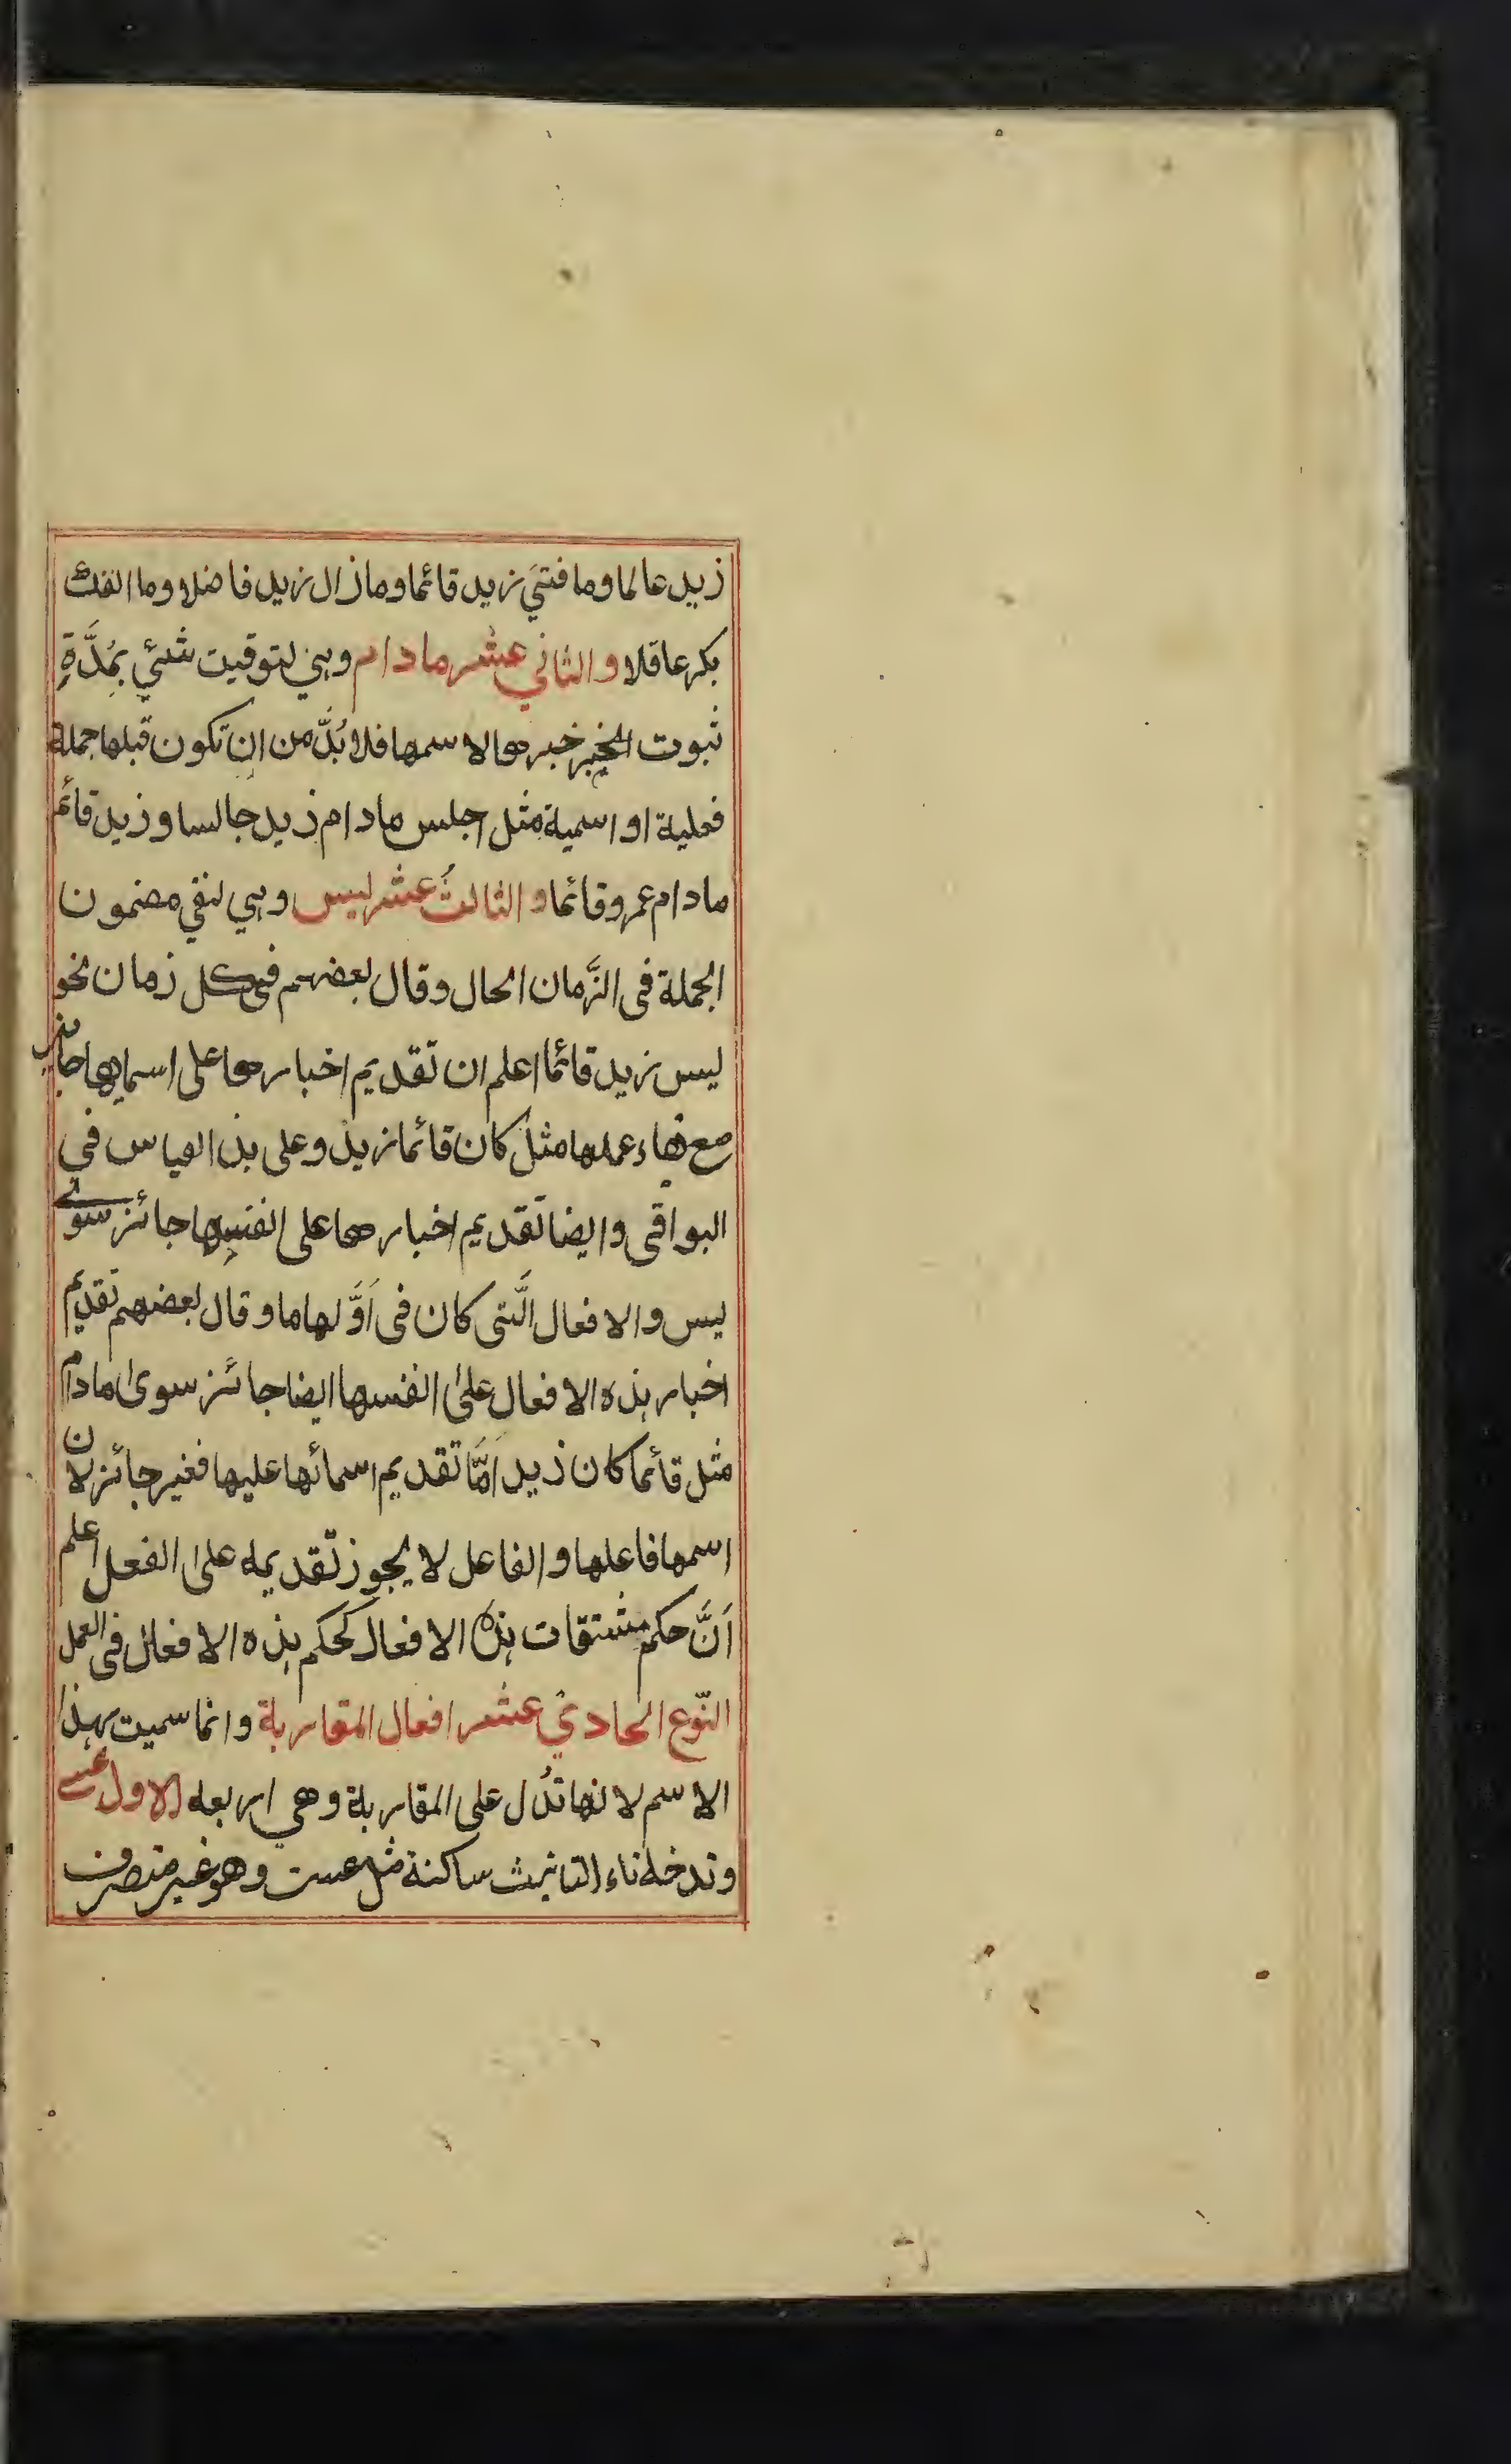 زيد عالما وما فتئ زيد قائما وما زال زيد فاضلا وما انفك
بكر عاقلا والثاني عشر مادام وهي لتوقيت شئي بمُدَّةِ
ثبوت الخبر خبرها لاسمها فلا بُدَّ من ان تكون قبلها جملة
فعلية او اسمية مثل اجلس مادام زيد جالسا وزيد قائم
مادام عمرو قائما والثالث عشر ليس وهي لنفي مضمون
الجملة فى الزَّمان الحال وقال بعضهم فى كل زمان نحو
ليس زيد قائما اعلم ان تقديم اخبارها على اسمايها جائز
مع بقاء عملها مثل كان قائما زيد وعلى هذا القياس في
البواقى وايضا تقديم اخبارها على انفسها جائز سوى
ليس والافعال الَّتى كان فى اَوَّلها ما وقال بعضهم تقديم
اخبار هذه الافعال على انفسها ايضا جائز سوى مادام
مثل قائما كان زيد اَمَّا تقديم اسمائها عليها فغير جائز لان
اسمها فاعلها والفاعل لا يجوز تقديمه على الفعل اعلم
اَنَّ حكم مشتقات هذه الافعال كحكم هذه الافعال فى العمل
النّوع الحادي عشر افعال المقاربة وانما سميت بهذا
الاسم لانها تدُل على المقاربة وهي اربعه الاول عسى
وتدخله تاء التانيث ساكنة مثل عست وهو غير متصرف